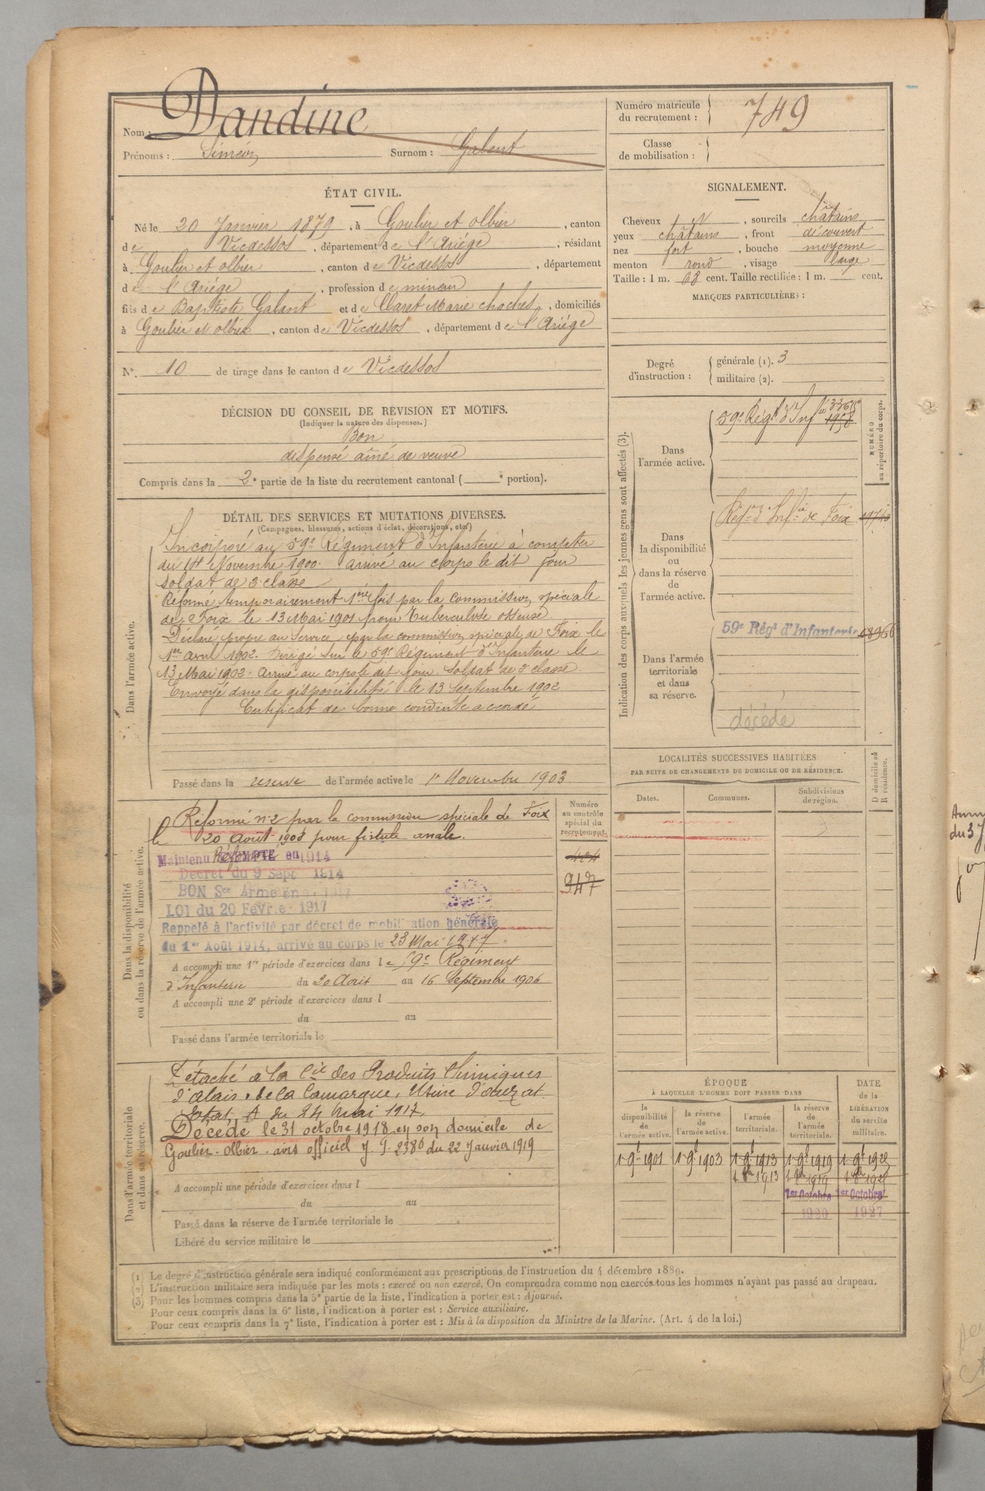 Nom : Dandine
Prénoms : Siméon Surnom : Galant
Numéro matricule du recrutement : 749
Classe de mobilisation :
ÉTAT CIVIL.
Né le 20 Janvier 1879, à Goulier et olbier, canton
de Vicdessos, département de l'Ariége, résidant
à Goulier et olbier, canton de Vicdessos, département
de l'Ariége, profession de mineur
fils de Baptiste Galant et de Claret Marie, domiciliés
à Goulier et olbier, canton de Vicdessos, département de l'Ariége
N° 10 de tirage dans le canton de Vicdessos
SIGNALEMENT.
Cheveux N, sourcils châtains
yeux châtains, front découvert
nez fort, bouche moyenne
menton rond, visage large
Taille : 1 m. 68 cent. Taille rectifiée : 1 m. cent.
MARQUES PARTICULIÈRES :
Degré d'instruction : générale (1). 3
militaire (2).
DÉCISION DU CONSEIL DE REVISION ET MOTIFS.
(Indiquer la nature des dispenses.)
Bon
dispensé aîné de veuve
Compris dans la 2e partie de la liste du recrutement cantonal ( e portion).
DÉTAIL DES SERVICES ET MUTATIONS DIVERSES.
(Campagnes, blessures, actions d'éclat, décorations, etc.)
Dans l'armée active.
Incorporé au 59e Régiment d'Infanterie à compter
du 14 Novembre 1900. arrivé au corps le dit jour
soldat de 2e classe
Réformé temporairement 1ère fois par la commission spéciale
de Foix le 13 Mai 1901 pour Tuberculose osseuse.
Déclaré propre au Service par la commission spéciale de Foix le
1er avril 1902. Dirigé sur le 59e Régiment d'Infanterie le
13 Mai 1902. Arrivé au corps le dit jour. Soldat de 2e classe.
Envoyé dans la disponibilité le 13 Septembre 1902
Certificat de bonne conduite accordé
Passé dans la reserve de l'armée active le 1er Novembre 1903
Indication des corps auxquels les jeunes gens sont affectés (3).
NUMÉRO au répertoire du corps.
Dans l'armée active.
59e Régt d'Inf
Dans la disponibilité ou dans la réserve de l'armée active.
Régt d'Infie de Foix
Dans l'armée territoriale et dans sa réserve.
59e Régt d'Infanterie
décédé
LOCALITÉS SUCCESSIVES HABITÉES
PAR SUITE DE CHANGEMENTS DE DOMICILE OU DE RÉSIDENCE.
Dates. Communes. Subdivisions de région. D domicile ou R résidence.
Dans la disponibilité ou dans la réserve de l'armée active.
Numéro au contrôle spécial du recrutement.
Réformé n°2 par la commission spéciale de Foix
le 20 Août 1908 pour fistule anale.
Maintenu Réformé en 1914
Décret du 9 Sept 1914
BON Sce Armé en 1917
LOI du 20 Février 1917
Rappelé à l'activité par décret de mobilisation générale
du 1er Août 1914, arrivé au corps le 23 Mai 1917.
947
A accompli une 1re période d'exercices dans le 59e Régiment
d'Infanterie du 20 Août au 16 Septembre 1906
A accompli une 2e période d'exercices dans l
du au
Passé dans l'armée territoriale le
Dans l'armée territoriale et dans sa réserve.
Détaché à la Cie des Produits Chimiques
d'Alais & de la Camargue, Usine d'Auzat
Etat A du 24 Mai 1917.
Décédé le 31 octobre 1918 en son domicile de
Goulier-Olbier. avis officiel y J. 2380 du 22 Janvier 1919
A accompli une période d'exercices dans l
du au
Passé dans la réserve de l'armée territoriale le
Libéré du service militaire le
ÉPOQUE
À LAQUELLE L'HOMME DOIT PASSER DANS
DATE de la LIBÉRATION du service militaire.
la disponibilité de l'armée active. la réserve de l'armée active. l'armée territoriale. la réserve de l'armée territoriale.
1 9bre 1901 1 9bre 1903 1 9bre 1913 1 9bre 1919
1er Octobre 1er Octobre
1920 1927
(1) Le degré d'instruction générale sera indiqué conformément aux prescriptions de l'instruction du 4 décembre 1889.
(2) L'instruction militaire sera indiquée par les mots : exercé ou non exercé. On comprendra comme non exercés tous les hommes n'ayant pas passé au drapeau.
(3) Pour les hommes compris dans la 5e partie de la liste, l'indication à porter est : Ajourné.
Pour ceux compris dans la 6e liste, l'indication à porter est : Service auxiliaire.
Pour ceux compris dans la 7e liste, l'indication à porter est : Mis à la disposition du Ministre de la Marine. (Art. 4 de la loi.)